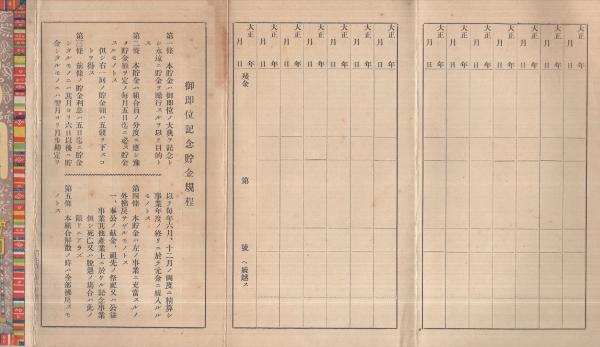 御即位記念貯金規程
第一條 本貯金ハ御即位ノ大典ヲ記念ト
シ永遠ニ貯金ヲ勵行スルヲ以テ目的ト
ス
第二條 本貯金ハ組合員ノ分度ニ應シ豫
メ貯金額ヲ定メ毎月五日迄ニ必ス貯金
スルモノトス
但シ右一回ノ貯金額ハ五錢ヲ下スコ
トヲ得ス
第三條 前條ノ貯金利息ハ五日迄ニ貯金
シタルモノニハ其月ヨリ六日以後ニ貯
金シタルモノニハ翌月ヨリ月步勘定ヲ
以テ每年六月、十二月ノ兩度ニ精算シ
事業年度ノ終リニ於テ元金ニ組入ルル
モノトス
第四條 本貯金ハ左ノ事業ニ充當スルノ
外拂戾サザルモノトス
一、奉公ノ献金、祖先ノ祭祀又ハ公益
事業其他產業上ニ於ケル記念事業
但シ死亡又ハ脫退ノ場合ハ此ノ
限リニアラズ
第五條 本組合解散ノ時ハ全部拂戾スモ
ノトス
大正 年 月 日
大正 年 月 日
大正 年 月 日
大正 年 月 日
大正 年 月 日
殘金 第 號ヘ繰越ス
大正 年 月 日
大正 年 月 日
大正 年 月 日
大正 年 月 日
大正 年 月 日